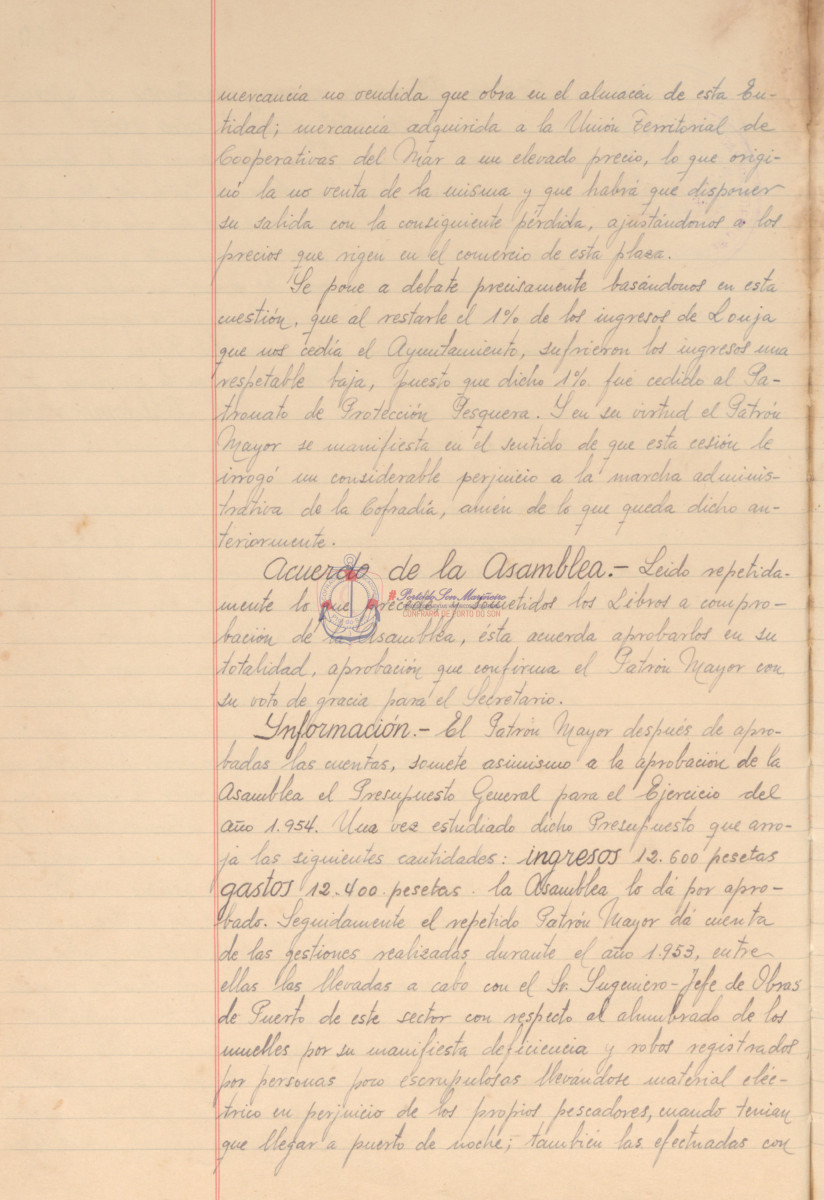 mercancía no vendida que obra en el almacén de esta En-
tidad; mercancía adquirida a la Unión Territorial de
Cooperativas del Mar a un elevado precio, lo que origi-
nó la no venta de la misma y que habrá que disponer
su salida con la consiguiente pérdida, ajustándonos a los
precios que rigen en el comercio de esta plaza.
Se pone a debate precisamente basándonos en esta
cuestión, que al restarle el 1% de los ingresos de Lonja
que nos cedía el Ayuntamiento, sufrieron los ingresos una
respetable baja, puesto que dicho 1% fué cedido al Pa-
tronato de Protección Pesquera. Y en su virtud el Patrón
Mayor se manifiesta en el sentido de que esta cesión le
irrogó un considerable perjuicio a la marcha adminis-
trativa de la Cofradía, amén de lo que queda dicho an-
teriormente.
Acuerdo de la Asamblea.- Leido repetida-
mente lo que precede y sometidos los Libros a compro-
bación de la Asamblea, ésta acuerda aprobarlos en su
totalidad, aprobación que confirma el Patrón Mayor con
su voto de gracia para el Secretario.
Ynformación.- El Patrón Mayor después de apro-
badas las cuentas, somete asimismo a la aprobación de la
Asamblea el Presupuesto General para el Ejercicio del
año 1.954. Una vez estudiado dicho Presupuesto que arro-
ja las siguientes cantidades: ingresos 12.600 pesetas
gastos 12.400 pesetas. la Asamblea lo dá por apro-
bado. Seguidamente el repetido Patrón Mayor dá cuenta
de las gestiones realizadas durante el año 1.953, entre
ellas las llevadas a cabo con el Sr. Yngeniero-Jefe de Obras
de Puerto de este sector con respecto al alumbrado de los
muelles por su manifiesta deficiencia y robos registrados
por personas poco escrupulosas llevándose material eléc-
trico en perjuicio de los propios pescadores, cuando tenian
que llegar a puerto de noche; también las efectuadas con
Portal do Son Mariñeiro
CONFRARÍA DE PORTO DO SON